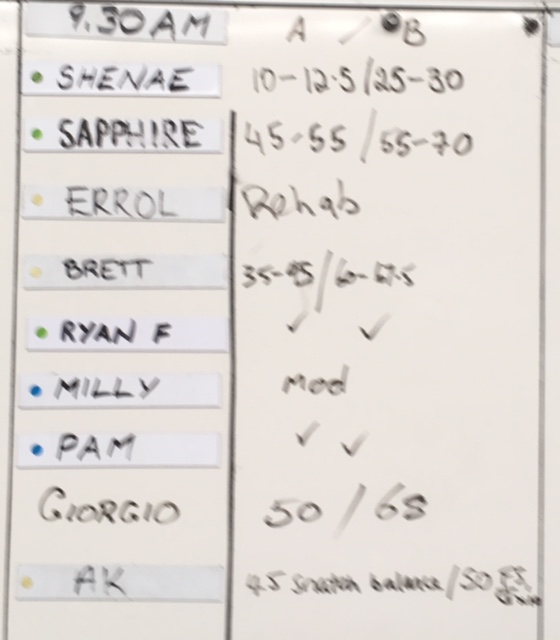 9.30AM A / B
SHENAE 10-12.5/25-30
SAPPHIRE 45-55/55-70
ERROL Rehab
BRETT 35-45/60-67.5
RYAN F ✓ ✓
MILLY mod
PAM ✓ ✓
GIORGIO 50/68
AK 45 snatch balance/50